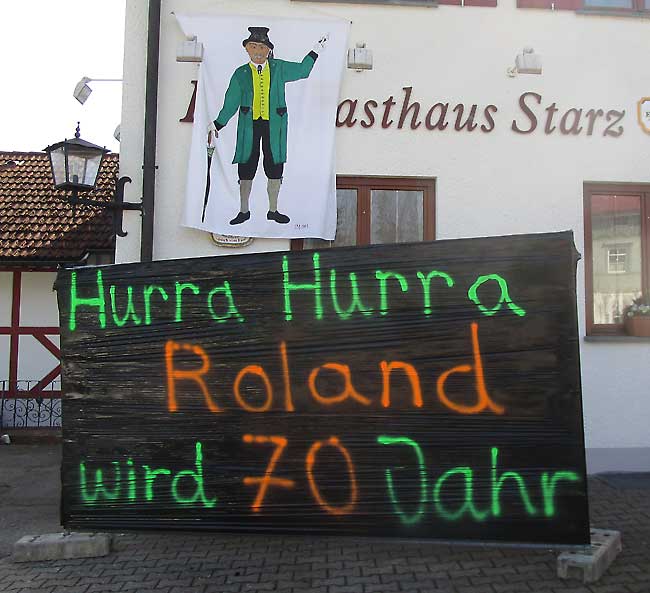 Gasthaus Starz
Hurra Hurra
Roland
wird 70 Jahr